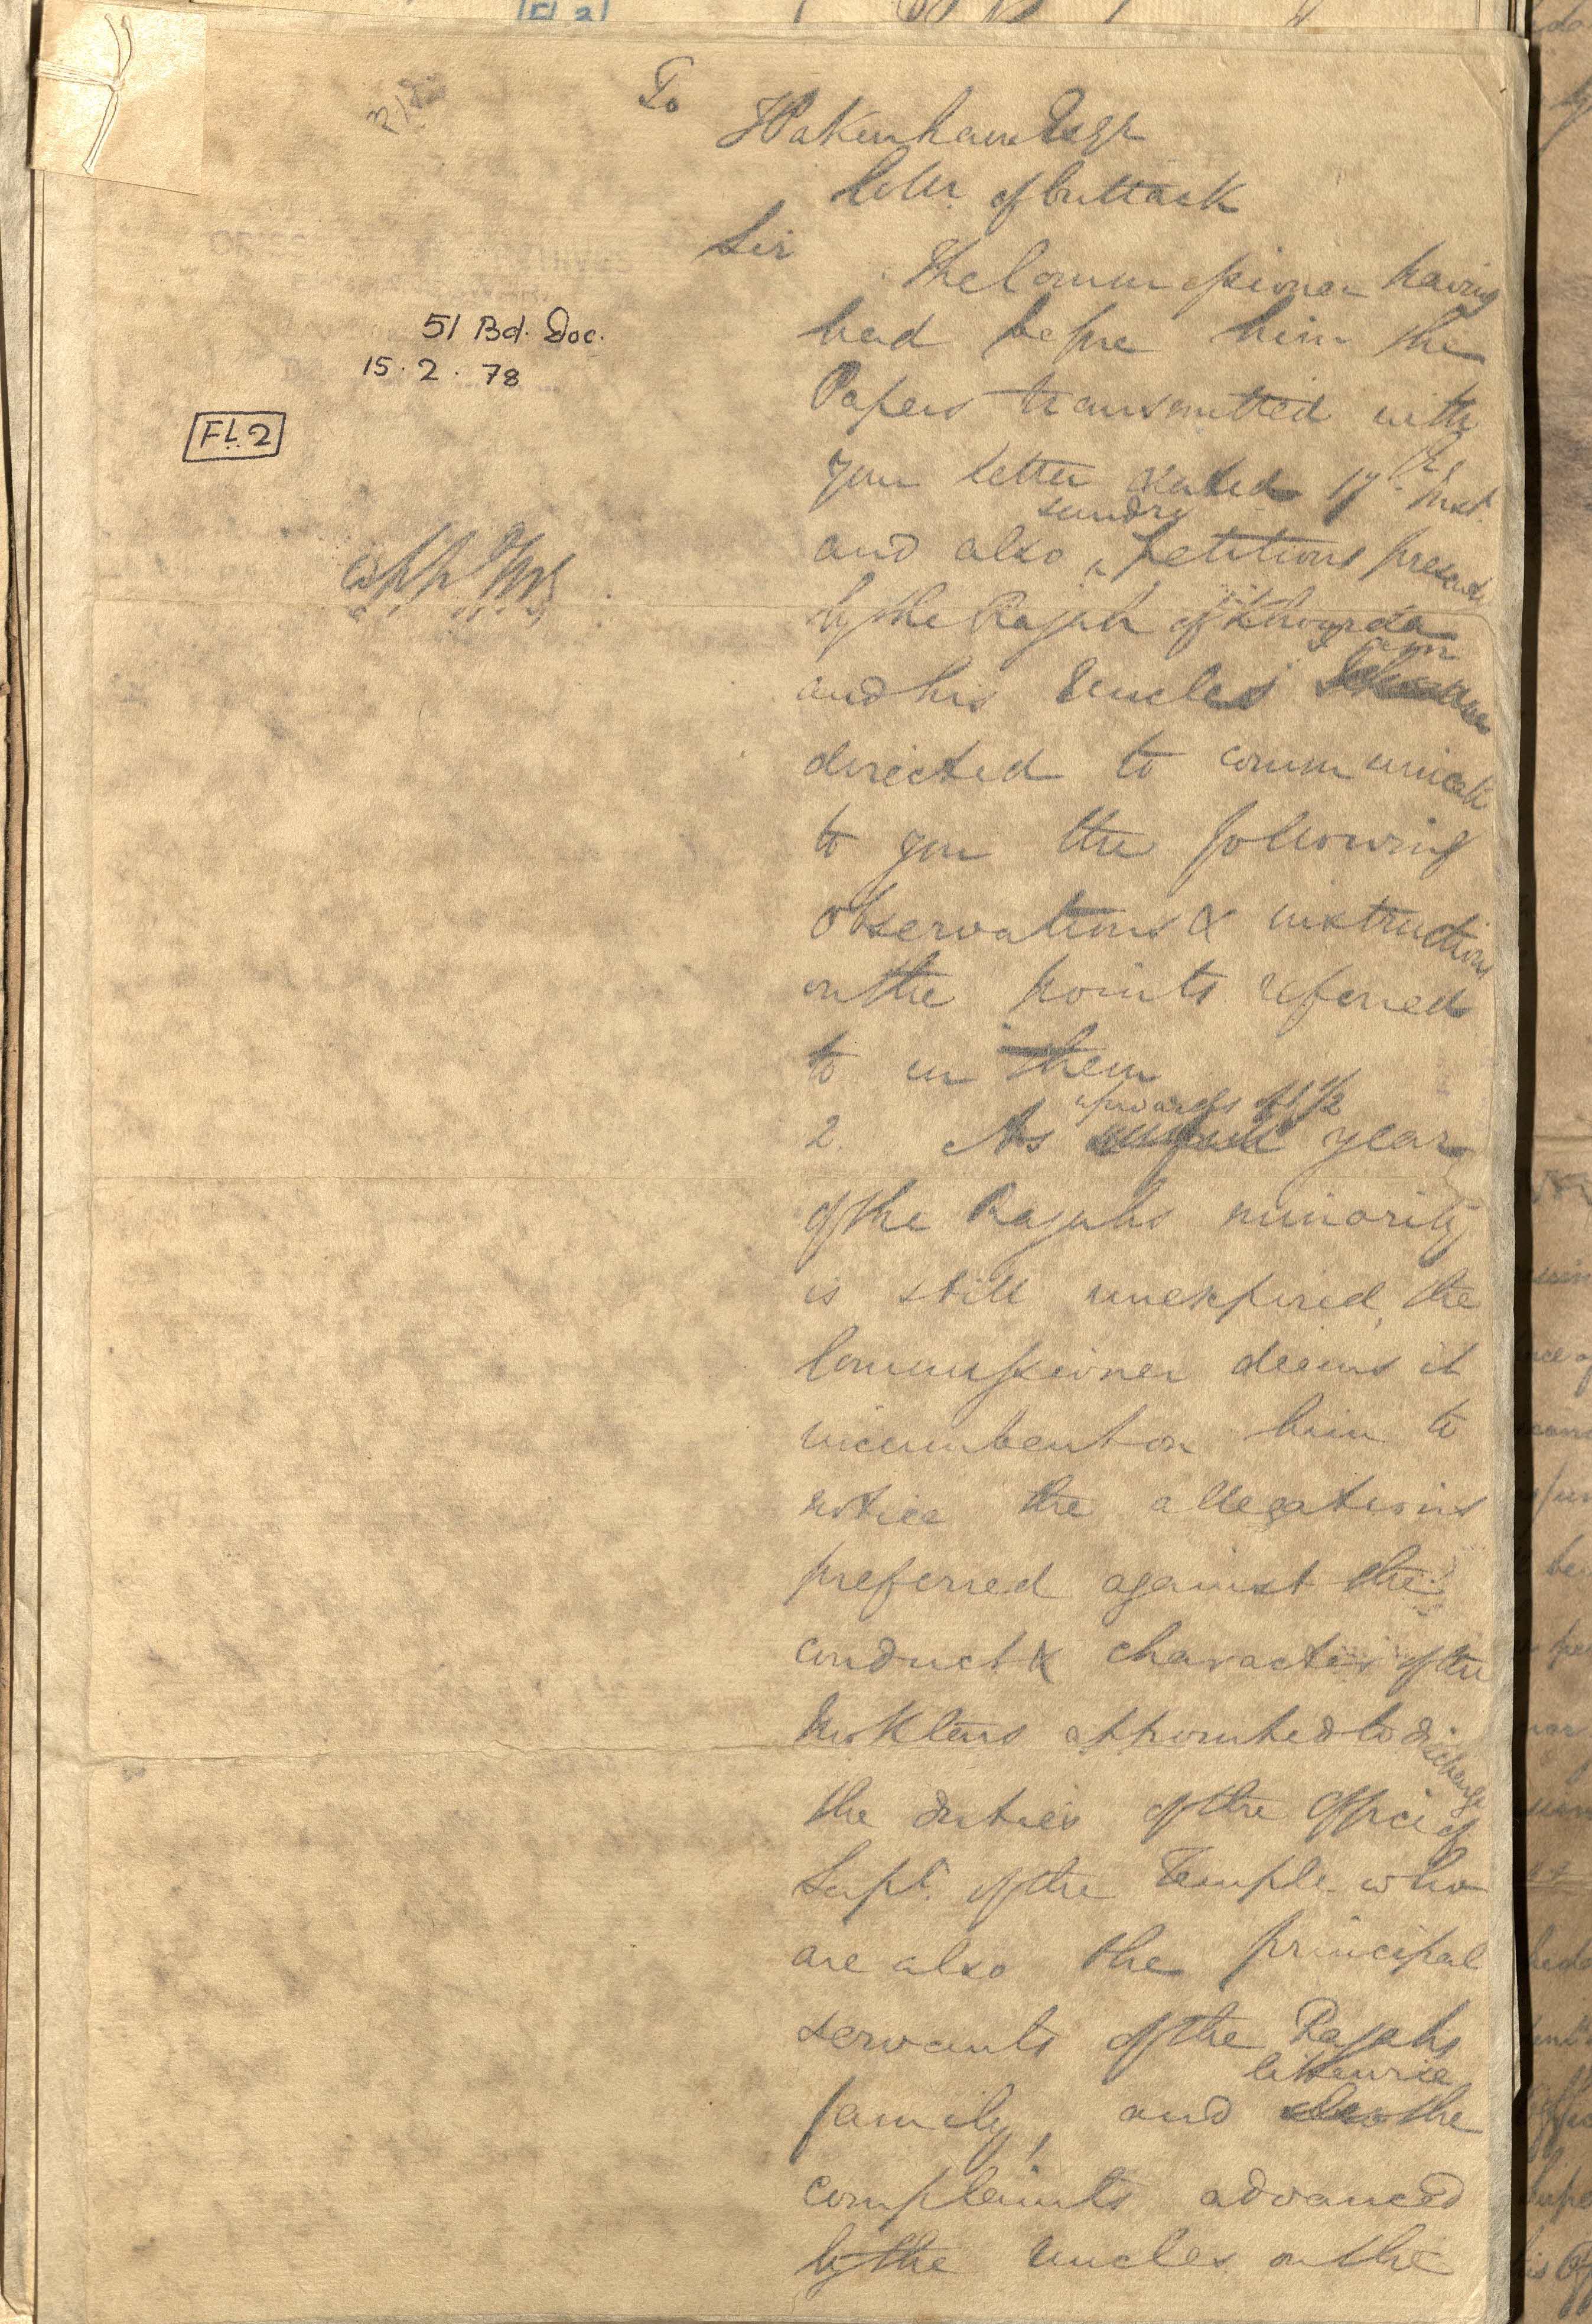 To
T Pakenham Esqr
Collr of Cuttack
Sir
The Commissioner having
had before him the
Papers transmitted with
your letter dated 17th Inst
and also sundry petitions presented
by the Rajah of Khoorda
and his Uncles I am
directed to communicate
to you the following
observations & instructions
on the points referred
to in them
2. As upwards of 1 1/2 year
of the Rajahs minority
is still unexpired, the
Commissioner deems it
incumbent on him to
notice the allegations
preferred against the
conduct & character of the
Mooktars appointed to discharge
the duties of the office of
Supt. of the Temple who
are also the principal
servants of the Rajahs
family, and likewise the
complaints advanced
by the Uncles on the
51 Bd. Doc.
15.2.78
FL.2